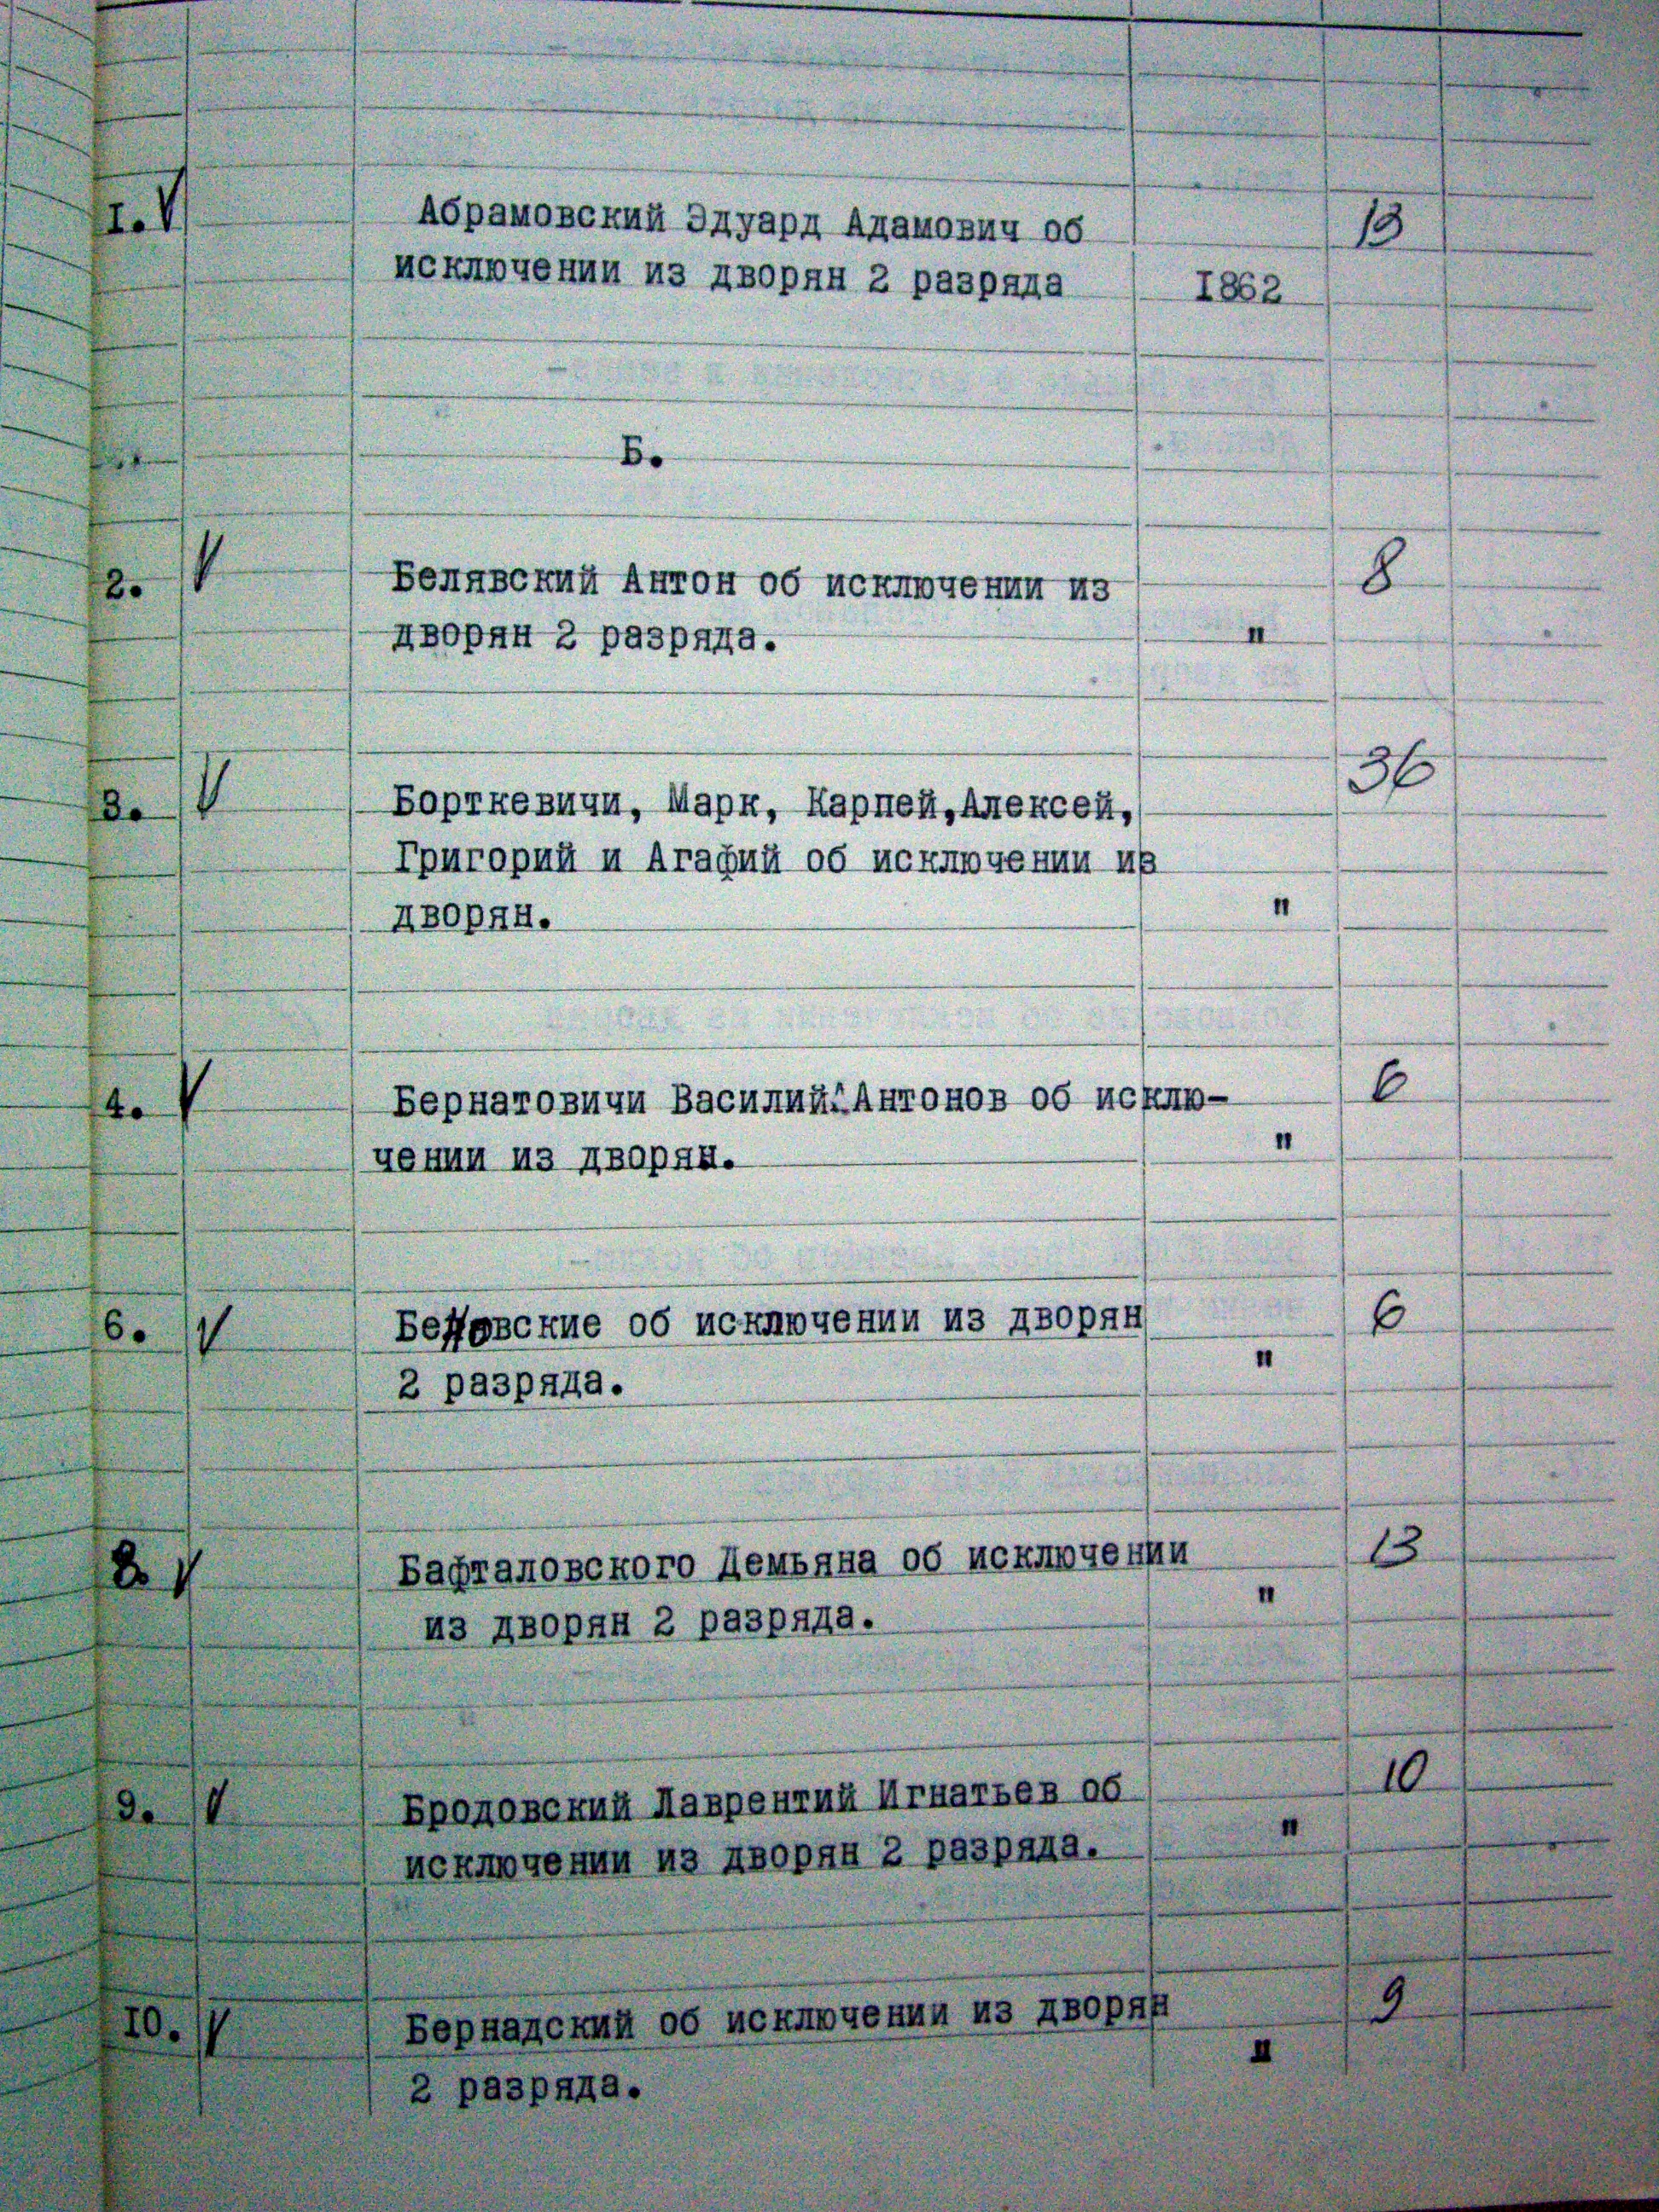 I. V Абрамовский Эдуард Адамович об 13
исключении из дворян 2 разряда 1862
Б.
2. V Белявский Антон об исключении из 8
дворян 2 разряда. "
3. V Борткевичи, Марк, Карпей, Алексей, 36
Григорий и Агафий об исключении из
дворян. "
4. V Бернатовичи Василий Антонов об исклю- 6
чении из дворян. "
6. V об исключении из дворян 6
2 разряда. "
8. V Бафталовского Демьяна об исключении 13
из дворян 2 разряда. "
9. V Бродовский Лаврентий Игнатьев об 10
исключении из дворян 2 разряда. "
10. V Бернадский об исключении из дворян 9
2 разряда. "